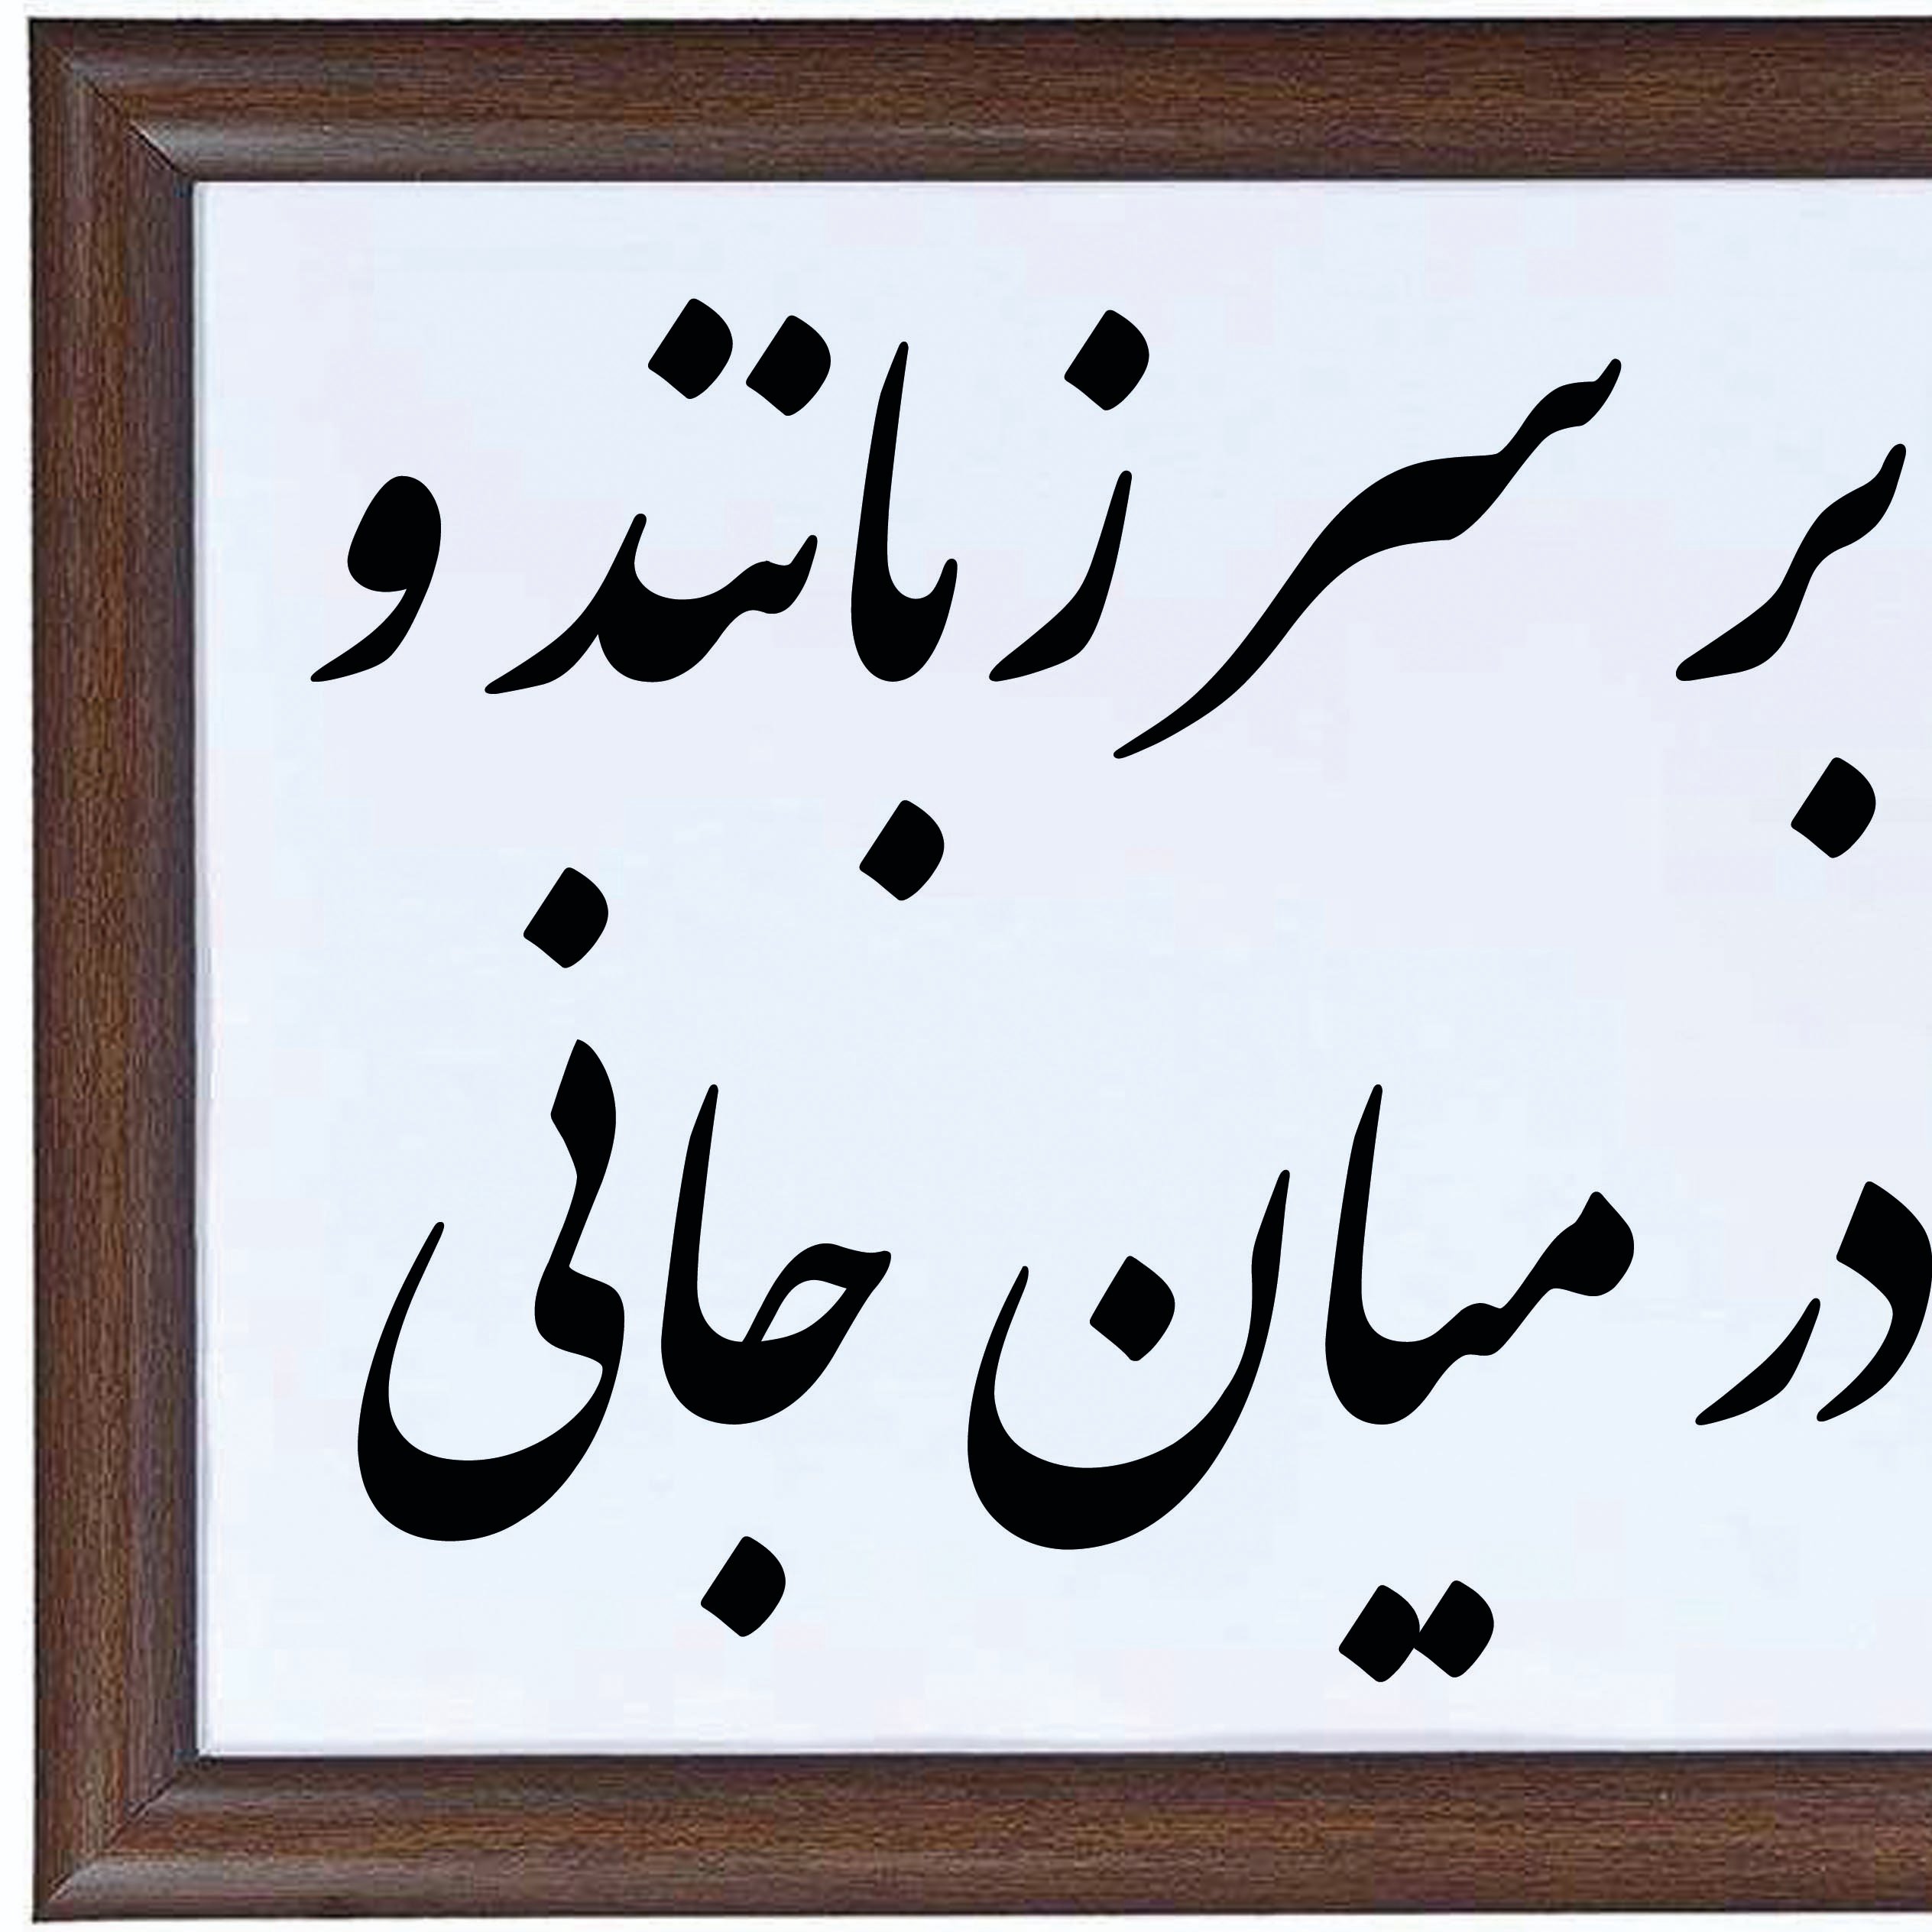 بر سر زبانند و
در میان جانی